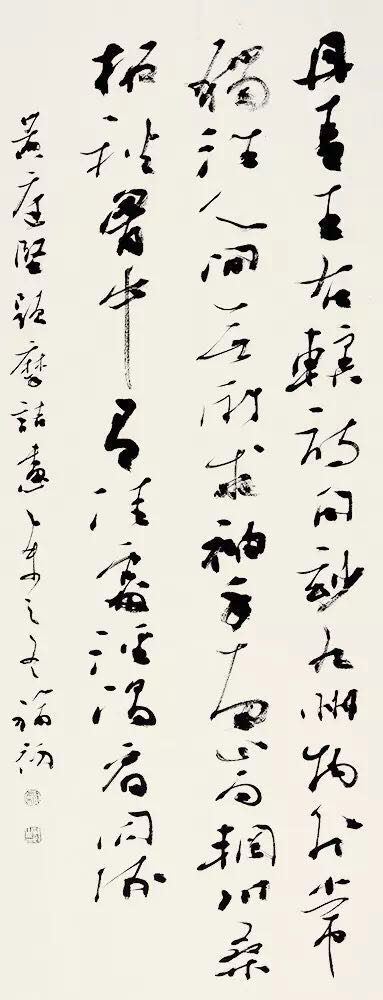 丹青王右轄詩句妙九州物外常
獨往人間無所求袖手南山雨輞川桑
柘秋胸中有佳處涇渭看同流
黃庭堅題摩詰畫乙未之冬